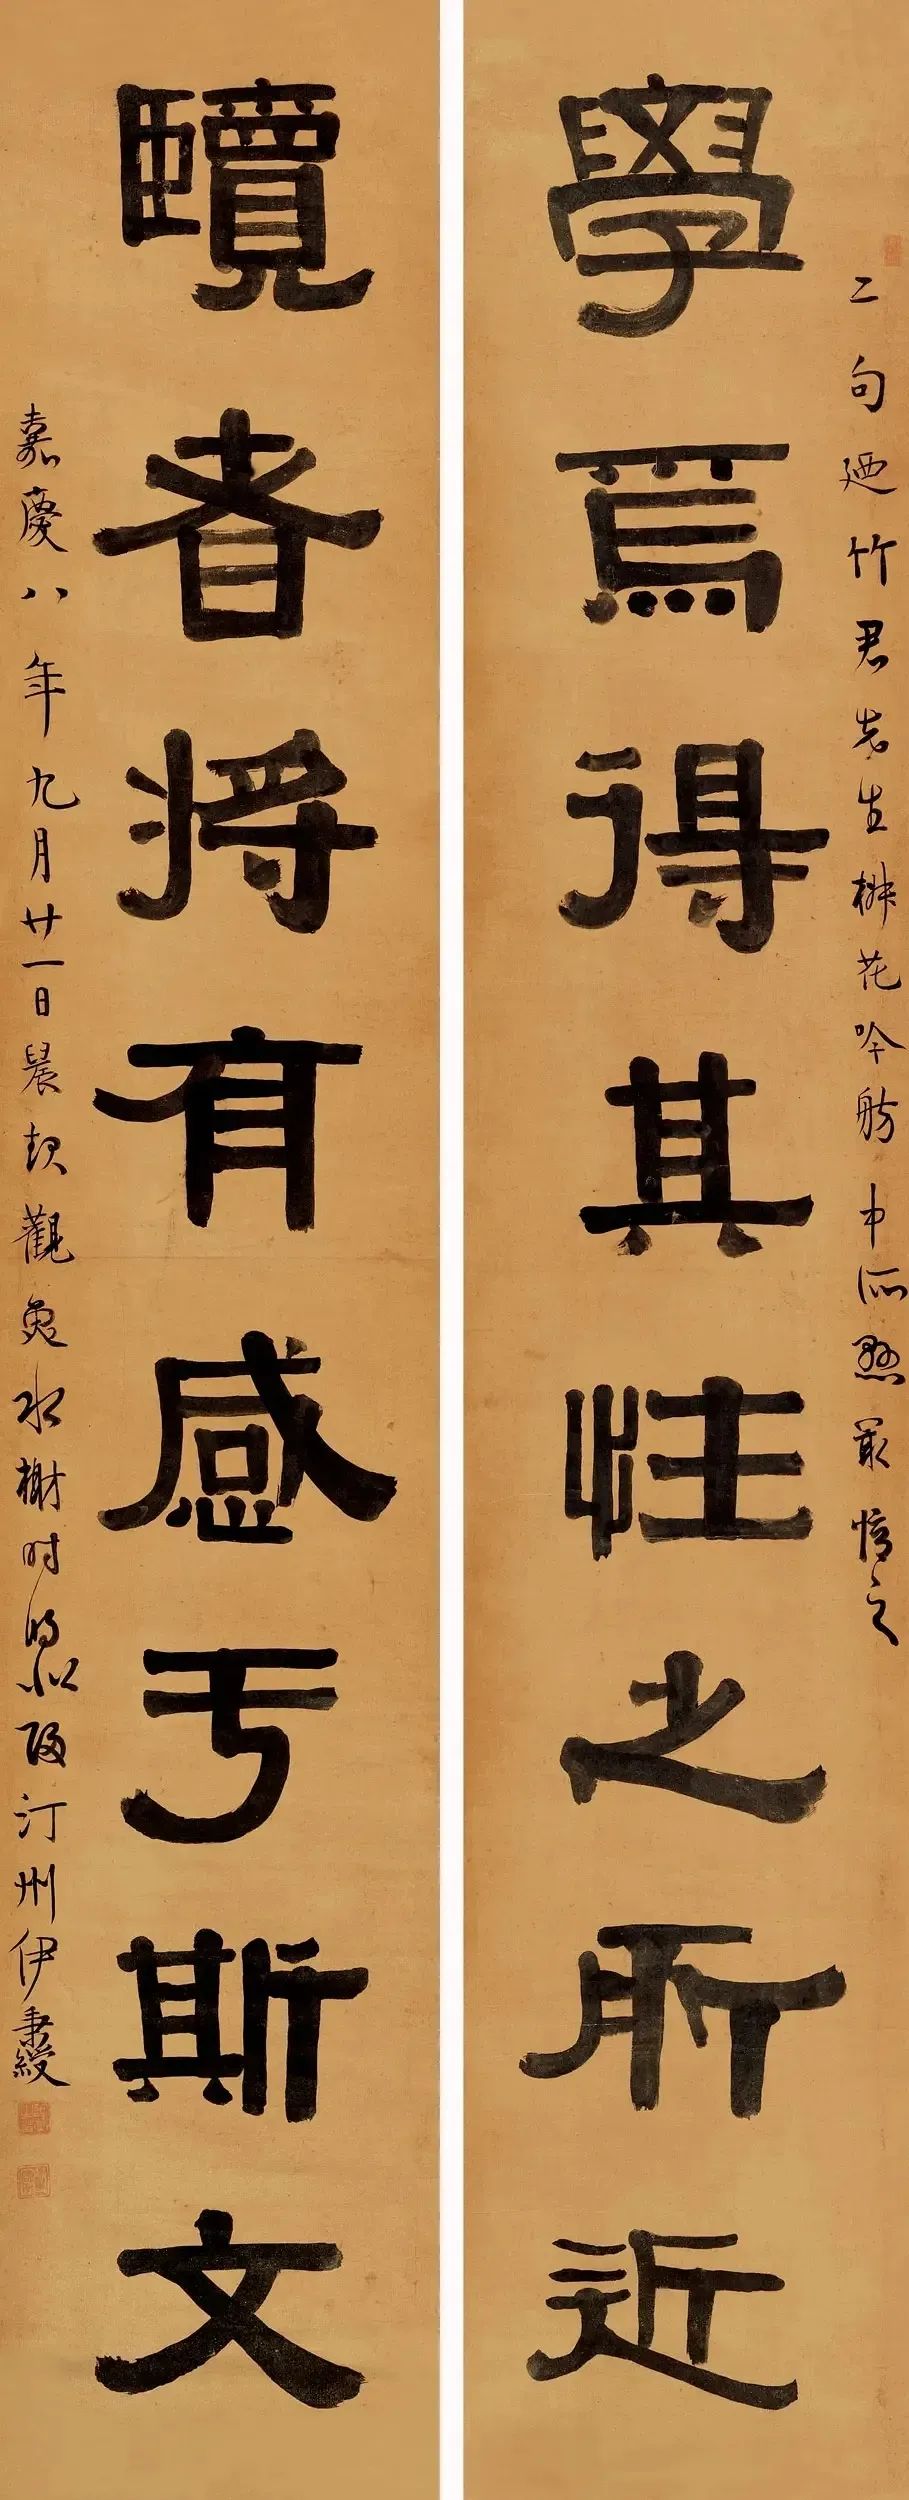 學焉得其性之所近
二句廼竹君先生椒花吟舫中所懸最憶之
覽者將有感于斯文
嘉慶八年九月廿一日晨起觀魚水榭時將北歸汀州伊秉綬